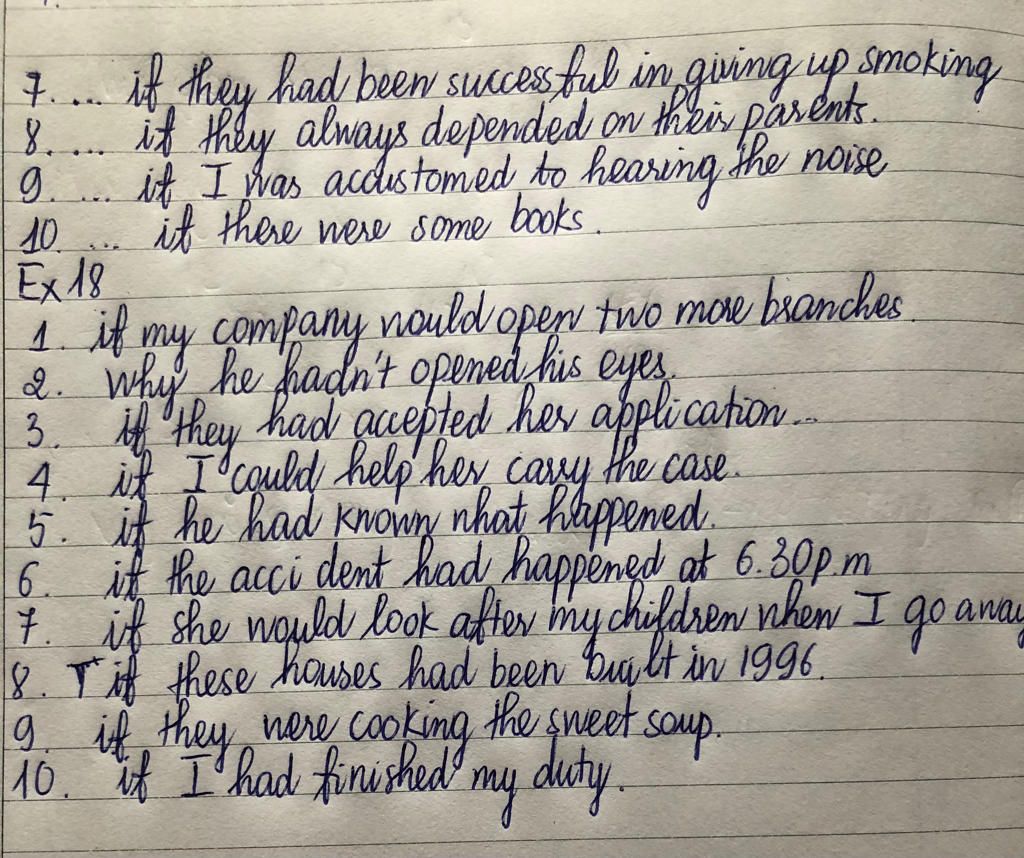 7. ... if they had been successful in giving up smoking
8. ... if they always depended on their parents.
9. ... if I was accustomed to hearing the noise
10. ... if there were some books.
Ex 18
1. if my company would open two more branches.
2. why he hadn't opened his eyes.
3. if they had accepted her application...
4. if I could help her carry the case.
5. if he had known what happened.
6 if the accident had happened at 6.30p.m
7. if she would look after my children when I go away
8. if these houses had been built in 1996.
9. if they were cooking the sweet soup.
10. if I had finished my duty.